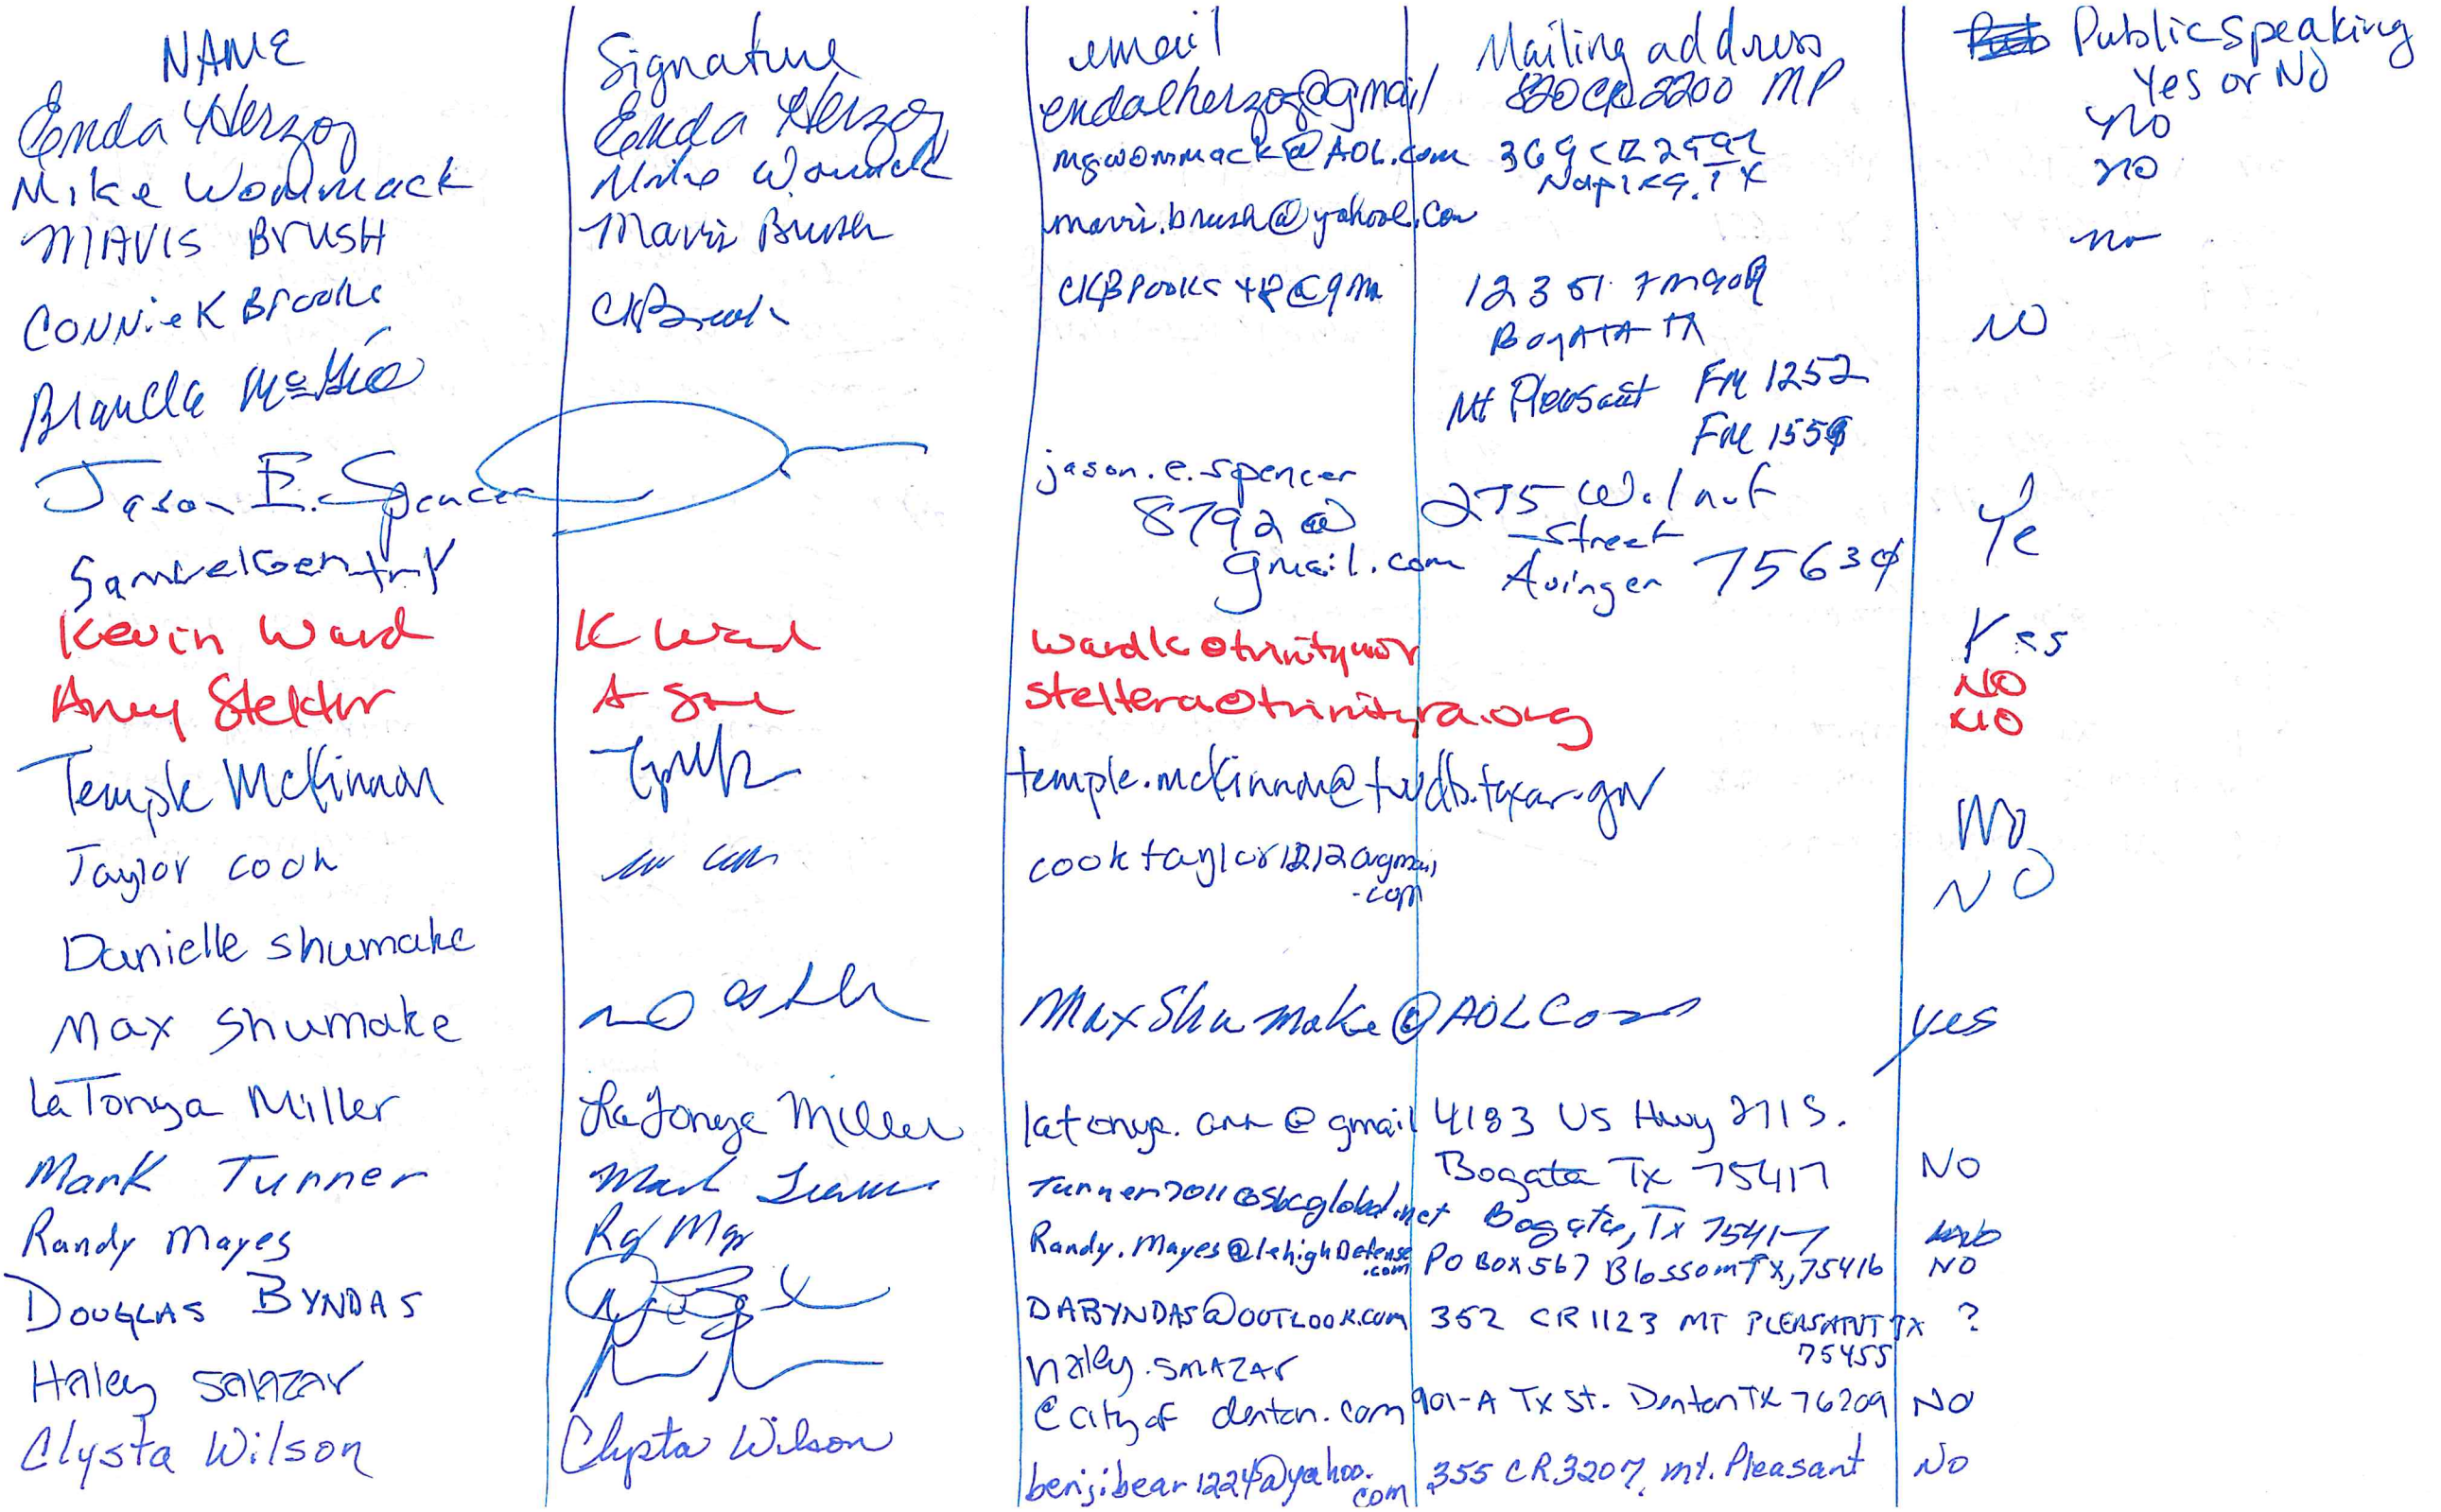 NAME Signature email Mailing address Public Speaking
Yes or No
Enda Herzog Enda Herzog endalherzog@gmail 820 CR 2200 MP No
Mike Wommack Mike Womack mgwommack@AOL.com 369 CR no
Naples, TX
MAVIS BRUSH Mavis Brush mavis.brush@yahool.com no
CONNIE K Brooks CKBrooks 12351
Bogata TX NO
Mt Pleasant FM 1252
FM 1559
Jason E. Spencer jason.e.spencer 275 Walnut Ye
8792@ Street
gmail.com Avinger 75630
Samuel Gentry Yes
Kevin Ward K Ward NO
Amy Stelter steltera@trinityra.org NO
Temple McKinnon temple.mckinnon@twdb.texas.gov No
Taylor cook cooktaylor1212@gmail NO
.com
Danielle Shumake
Max Shumake MaxShumake@AOL Com yes
LaTonya Miller LaTonya Miller latonya.ann@gmail 4183 US Hwy 271 S.
Bogata Tx 75417 No
Mark Turner Mark Turner Turner7011@sbcglobal.net Bogata, Tx 75417
Randy Mayes Randy.Mayes@lehighDefense PO BOX 567 Blossom TX, 75416 NO
.com
DOUGLAS BYNDAS DABYNDAS@OUTLOOK.com 352 CR 1123 MT PLEASANT TX ?
75455
Haley SALAZAR haley.SALAZAR
@cityof denton.com 901-A TX St. Denton TX 76209 NO
Clysta Wilson Clysta Wilson benjibear1224@yahoo. 355 CR 3207, Mt. Pleasant No
com